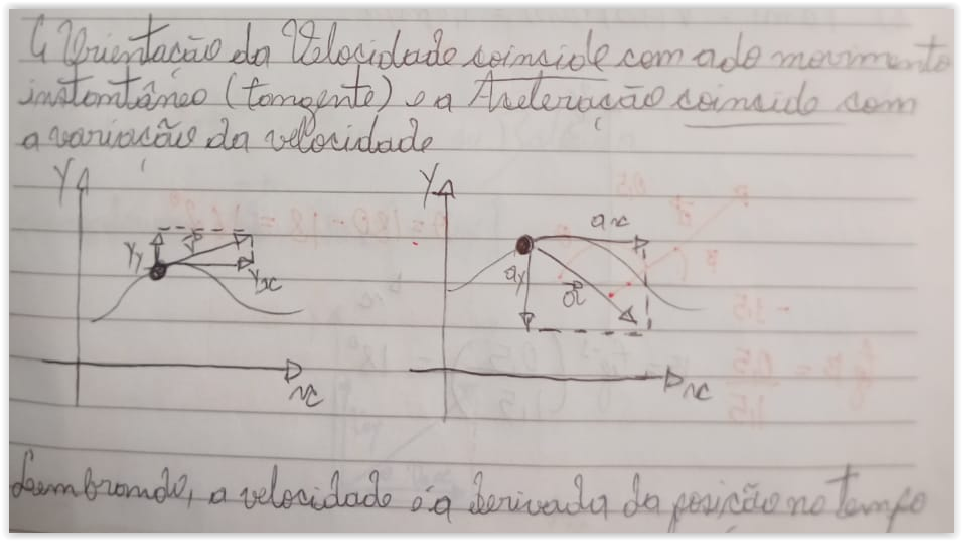 ↳ Orientação da Velocidade coincide com a do movimento
instantâneo (tangente) e a Aceleração coincide com
a variação da velocidade
Y Y
ax
Vy v⃗ ay
Vx a⃗
x x
Lembrando, a velocidade é a derivada da posição no tempo